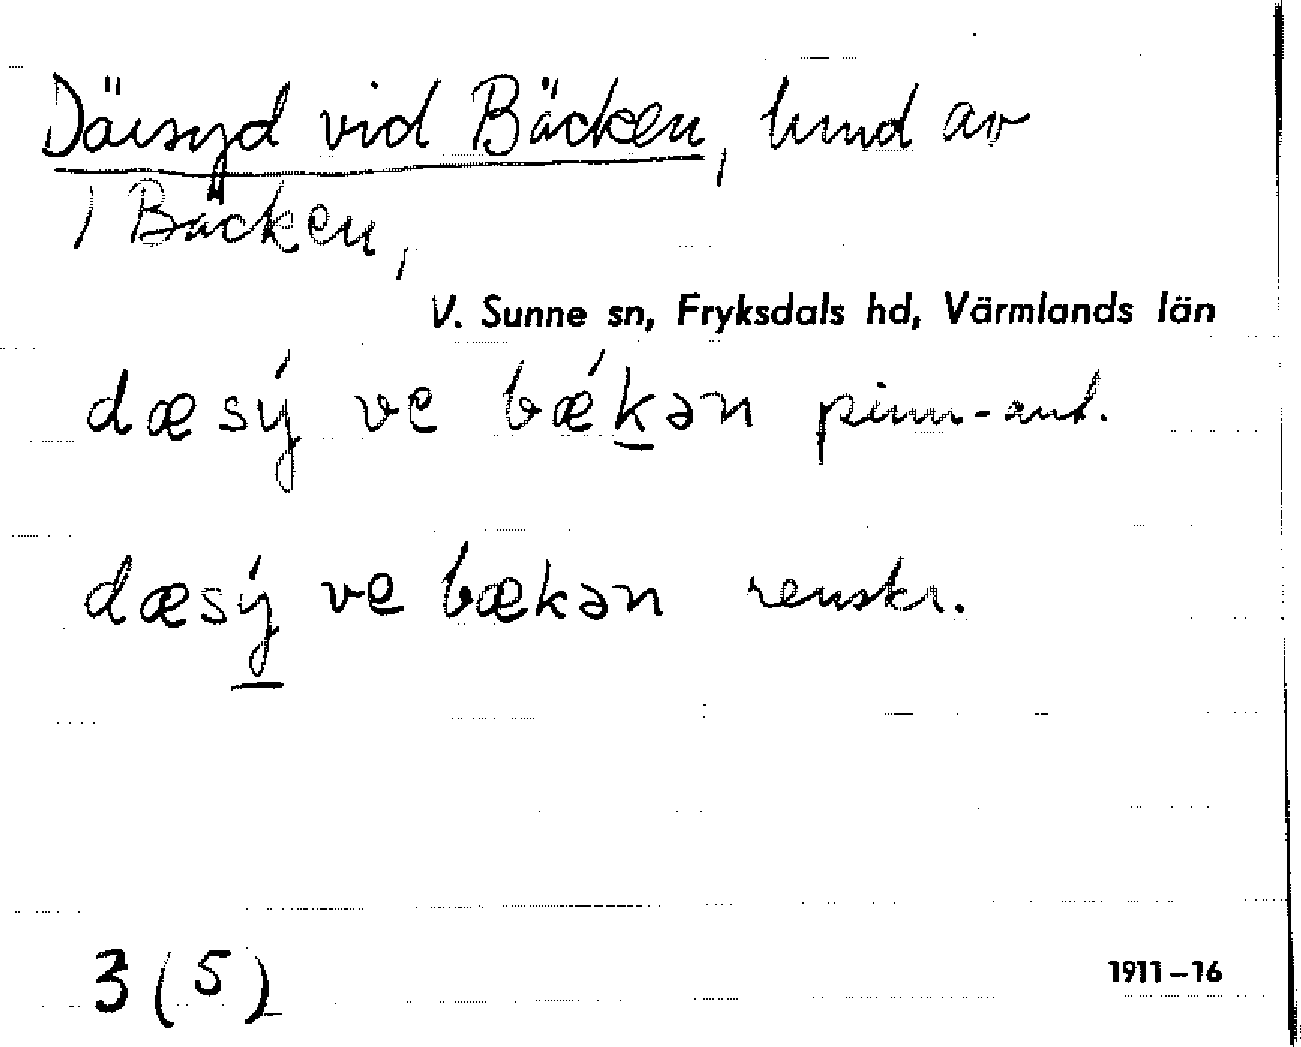 Däisyd vid Bäcken, hmd av
1 Bäcken,
V. Sunne sn, Fryksdals hd, Värmlands län
dæsý ve bǽkən prim-ant.
dæsý ve bækən renskr.
3 (5)
1911-16